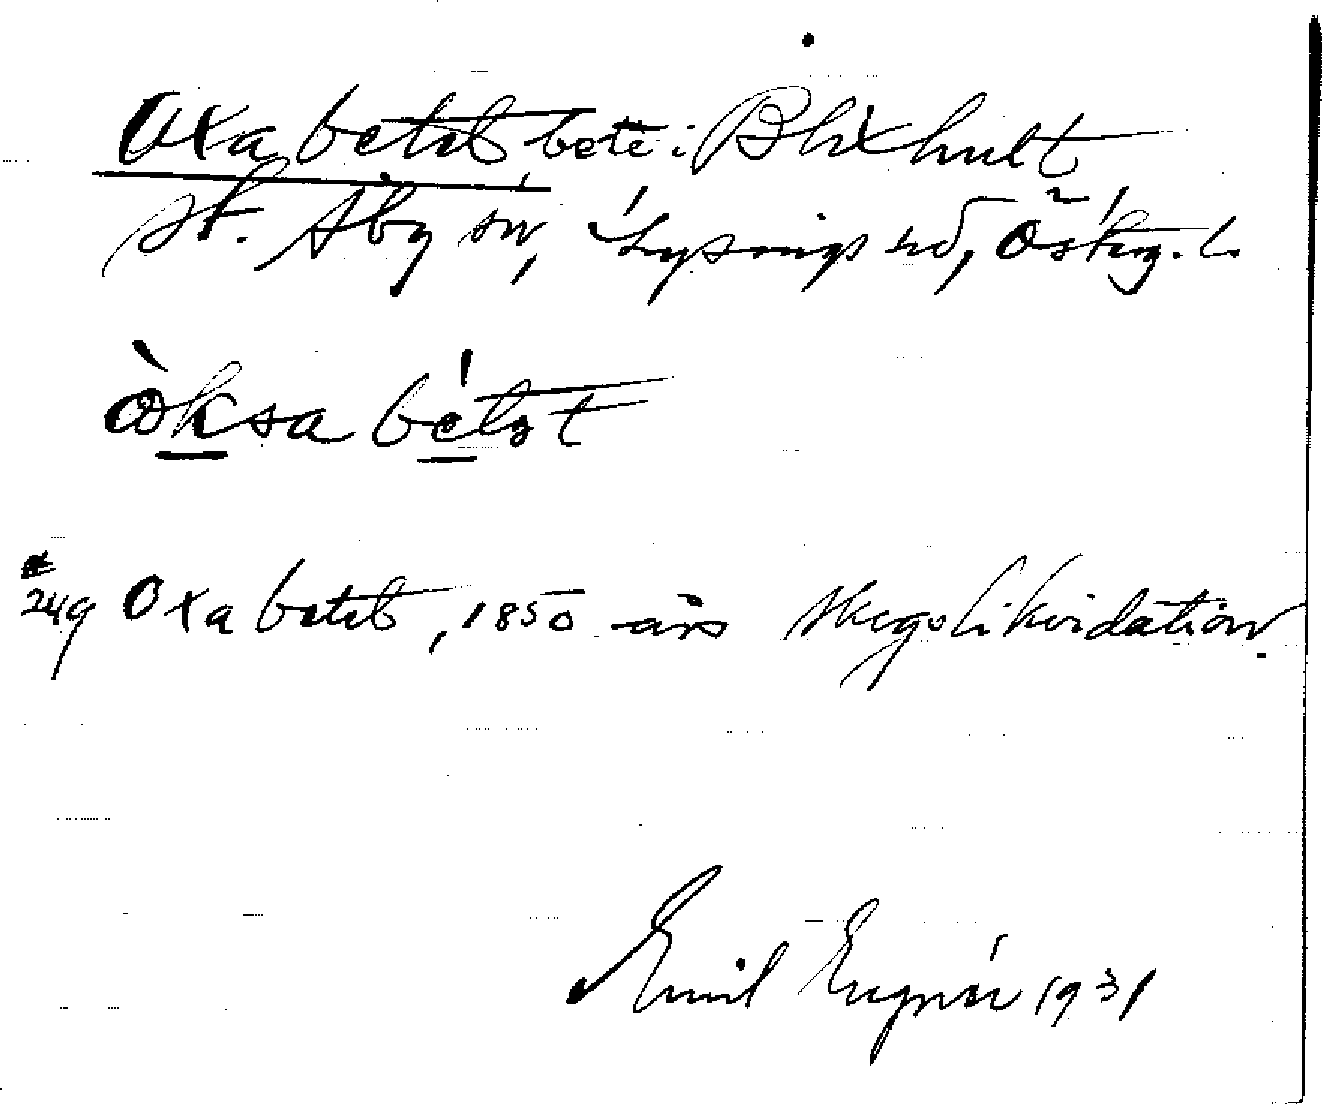 Oxabetet, bete i Blixhult
St. Åby sn, Lysings hd, Östg. l.
òksabétət
249 Oxabetet, 1850 års skogslikvidation.
Emil 1931